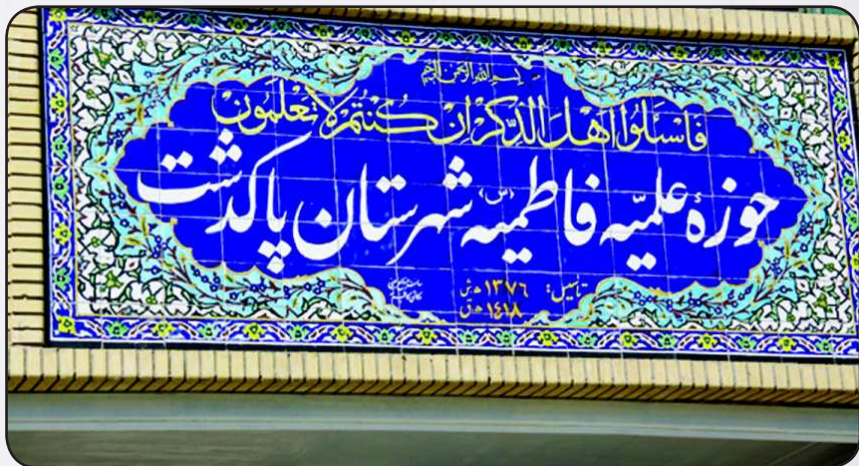 بسم الله الرحمن الرحیم
فَاسئَلُوا اَهلَ الذِّکرِ اِن کُنتُم لا تَعلَمُون
حوزهٔ علمیّه فاطمیه (س) شهرستان پاکدشت
تأسیس: ۱۳۷۶ ه‍.ش
۱۴۱۸ ه‍.ق